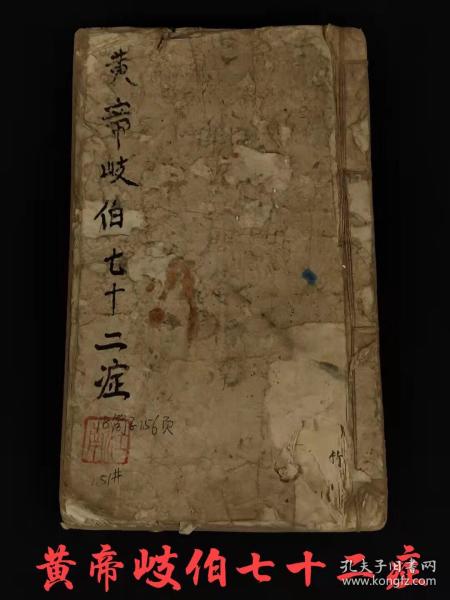 黄帝岐伯七十二症
156页
竹
黄帝岐伯七十二症
孔夫子旧书网
www.kongfz.com